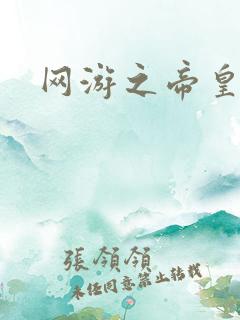 网游之帝皇
張領領
未经同意禁止转载